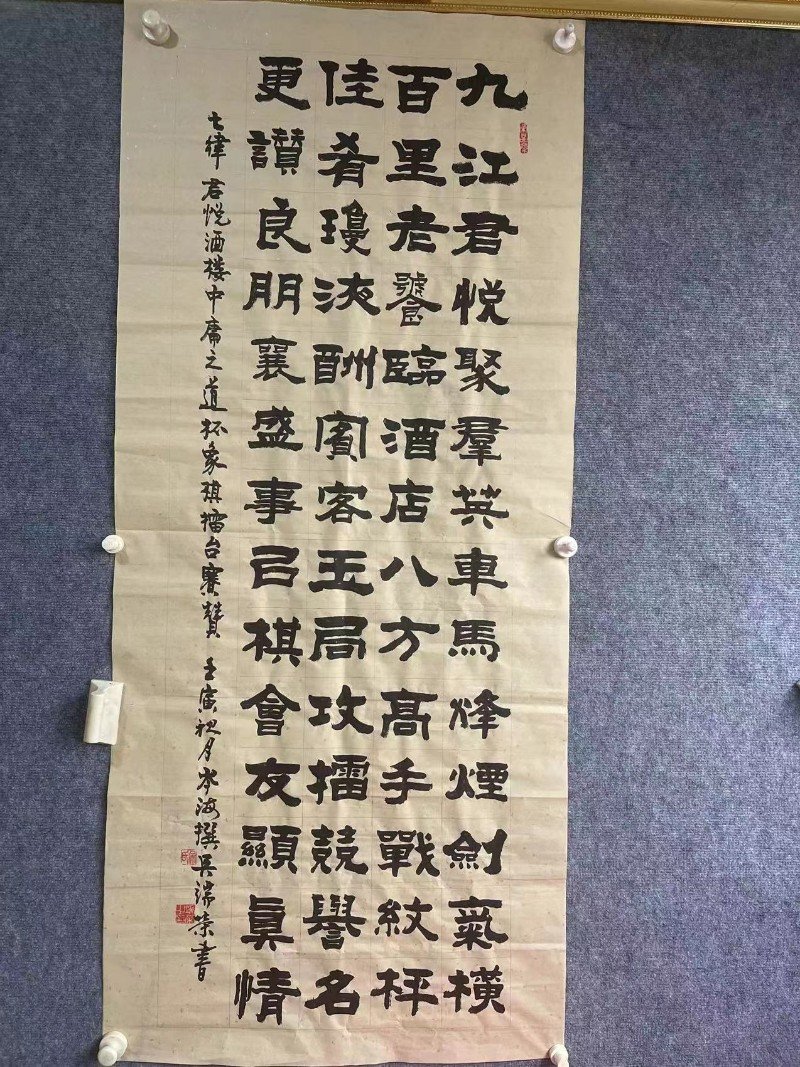 九江君悦聚羣英車馬烽煙劍氣橫
百里老饕臨酒店八方高手戰紋枰
佳肴瓊液酬賓客玉局攻擂競譽名
更讚良朋襄盛事以棋會友顯眞情
七律 君悦酒楼中庸之道杯象琪擂台赛赞 壬寅祀月岑海撰吴瑞荣书